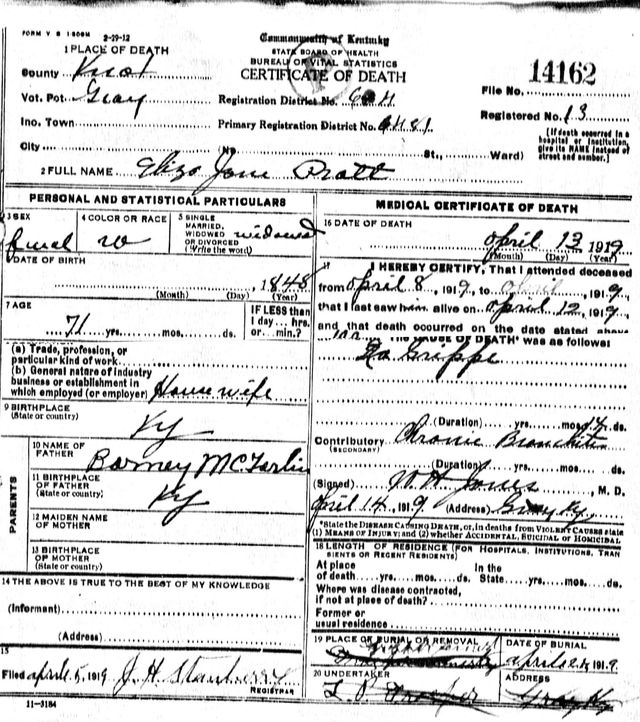 FORM V S 1-50M 2-29-12
Commonwealth of Kentucky
STATE BOARD OF HEALTH
BUREAU OF VITAL STATISTICS
CERTIFICATE OF DEATH
1 PLACE OF DEATH
County Knox
Vot. Pct. Gray
Registration District No.
Inc. Town
Primary Registration District No. 6481
City (No. St., Ward)
14162
File No.
Registered No. 13
[If death occurred in a hospital or institution, give its NAME instead of street and number.]
2 FULL NAME Eliza Jane Pratt
PERSONAL AND STATISTICAL PARTICULARS
3 SEX
4 COLOR OR RACE W
5 SINGLE MARRIED, WIDOWED OR DIVORCED (Write the word) widowed
6 DATE OF BIRTH
1848
(Month) (Day) (Year)
7 AGE
71 yrs. mos. ds.
IF LESS than 1 day... hrs. or... min.?
(a) Trade, profession, or particular kind of work
(b) General nature of industry business or establishment in which employed (or employer) House wife
9 BIRTHPLACE
(State or country) Ky
PARENTS
10 NAME OF FATHER Barney McFarlin
11 BIRTHPLACE OF FATHER (State or country) Ky
12 MAIDEN NAME OF MOTHER
13 BIRTHPLACE OF MOTHER (State or country)
14 THE ABOVE IS TRUE TO THE BEST OF MY KNOWLEDGE
(Informant)
(Address)
15
Filed April 5, 1919 J. H. Stanberry
REGISTRAR
11-3184
MEDICAL CERTIFICATE OF DEATH
16 DATE OF DEATH
April 13 1919
(Month) (Day) (Year)
17 I HEREBY CERTIFY, That I attended deceased
from April 8, 1919, to April, 1919,
that I last saw him alive on April 12, 1919,
and that death occurred on the date stated above
CAUSE OF DEATH was as follows:
La Grippe
(Duration) yrs. mos. 14 ds.
Contributory Chronic Bronchitis
(SECONDARY)
(Duration) yrs. mos. ds.
(Signed) W H Jones, M. D.
April 14, 1919 (Address) Gray Ky
*State the DISEASE CAUSING DEATH, or, in deaths from VIOLENT CAUSES state
(1) MEANS OF INJURY; and (2) whether ACCIDENTAL, SUICIDAL OR HOMICIDAL
18 LENGTH OF RESIDENCE (FOR HOSPITALS, INSTITUTIONS, TRANSIENTS OR RECENT RESIDENTS)
At place of death yrs. mos. ds. In the State yrs. mos. ds.
Where was disease contracted, if not at place of death?
Former or usual residence
19 PLACE OF BURIAL OR REMOVAL
DATE OF BURIAL
1919
20 UNDERTAKER
ADDRESS
Gray Ky